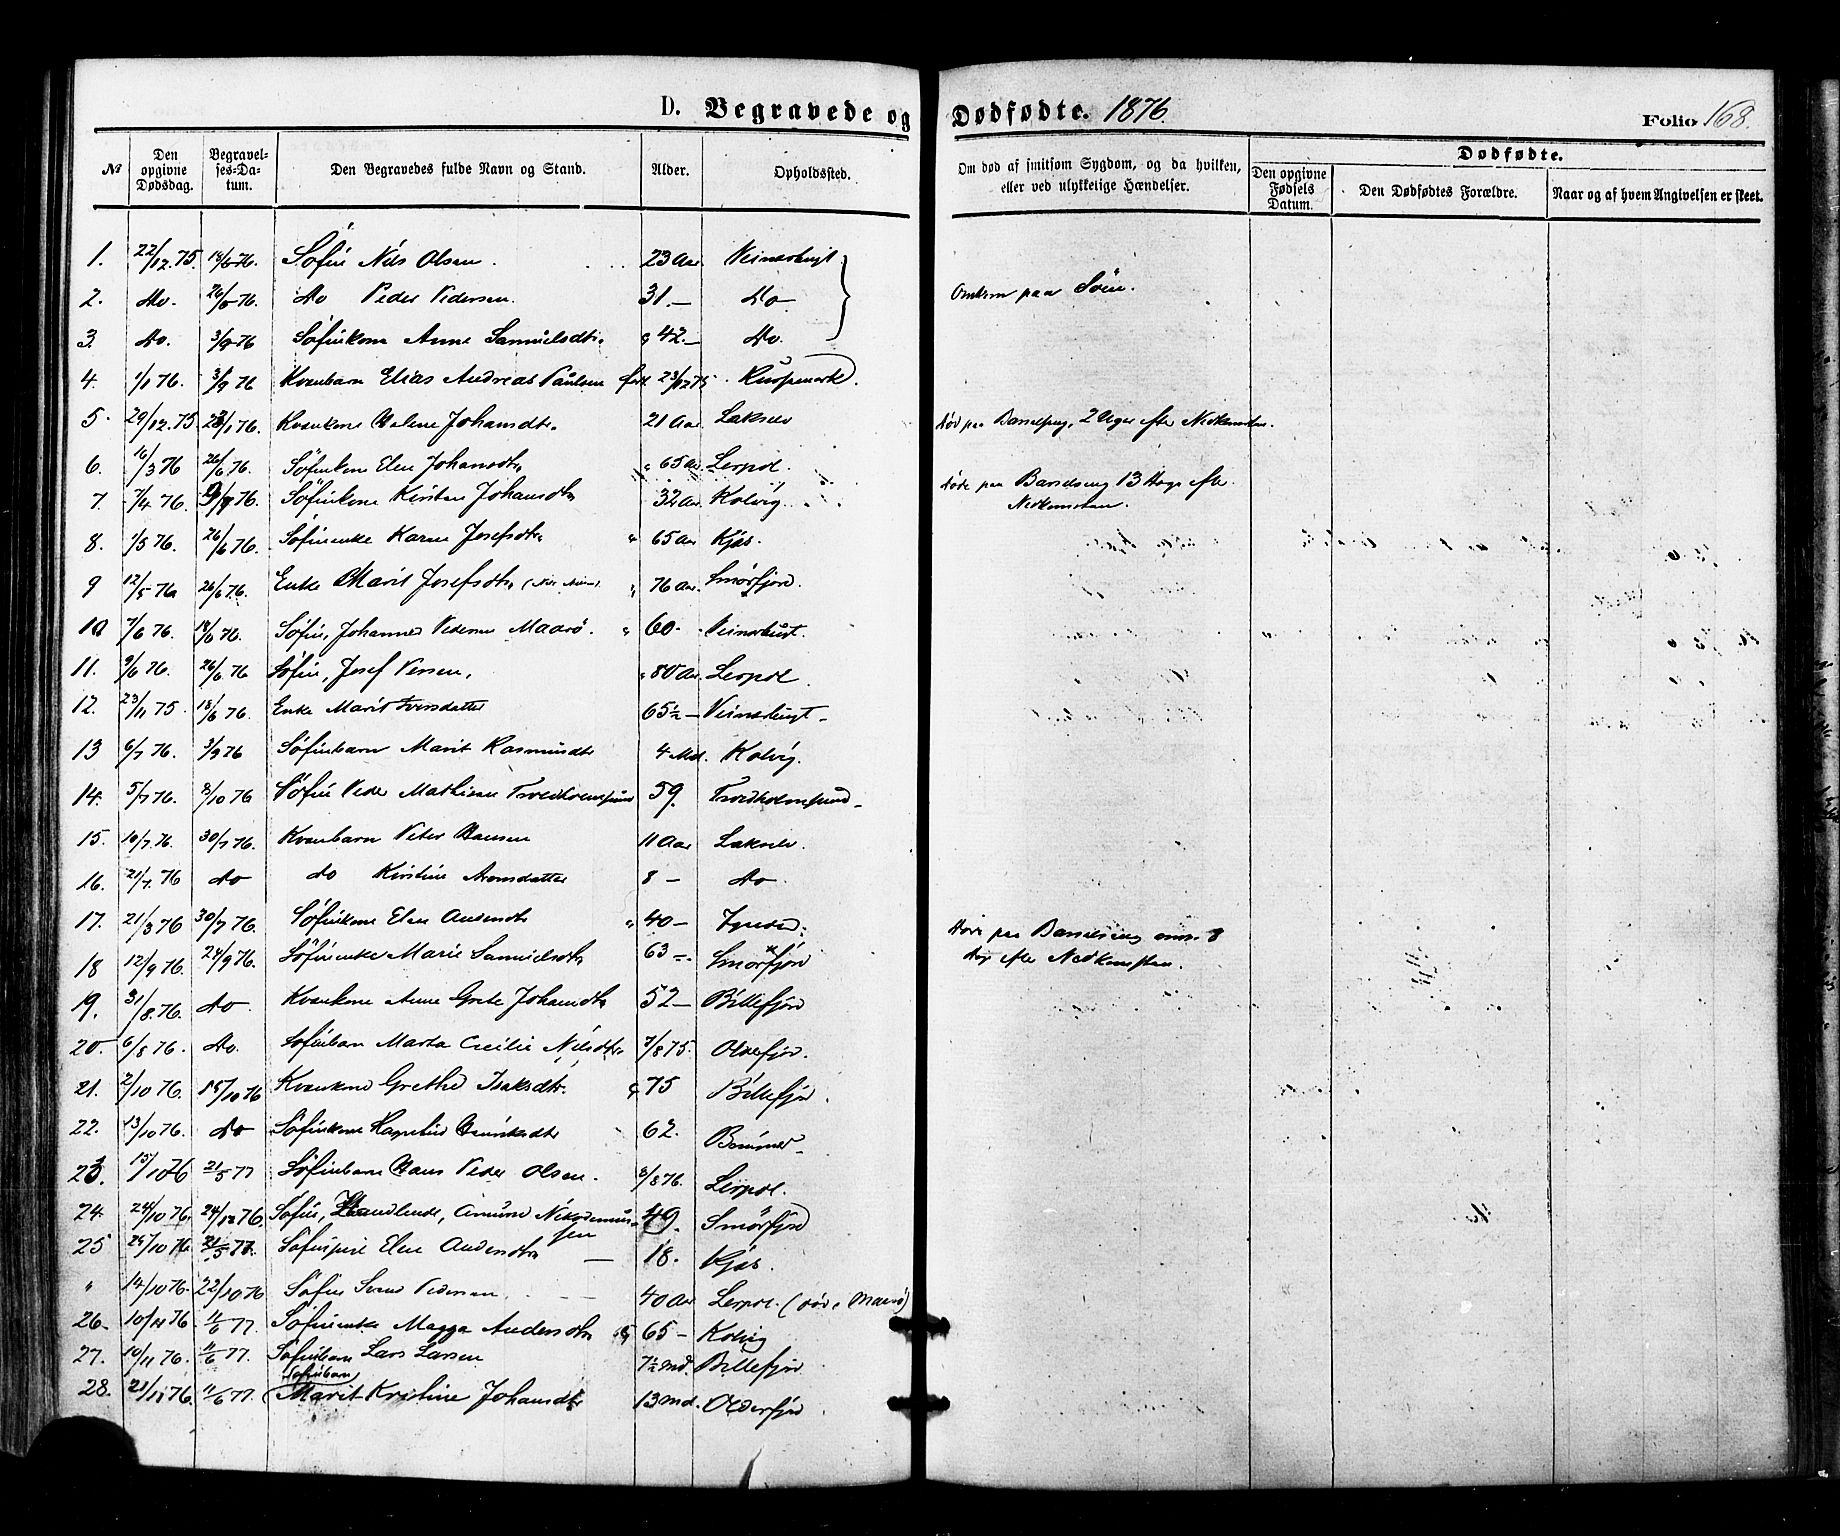 D. Begravede og Dødfødte. 1876. Folio 168.
№ Den opgivne Dødsdag. Begravelses-Datum. Den Begravedes fulde Navn og Stand. Alder. Opholdssted. Om død af smitsom Sygdom, og da hvilken, eller ved ulykkelige Hændelser. Dødfødte. Den opgivne Fødsels Datum. Den Dødfødtes Forældre. Naar og af hvem Angivelsen er skeet.
1. 22/12.75. 18/6 76. Søfin Nils Olsen. 23 Aar
2. Do. 26/6 76. Do Peder Pedersen. 31.— Do Omkom paa Søen.
3. Do. 3/9 76 Søfinkone Anne Samuelsdtr. 42.— Do.
4. 1/1 76. 3/9 76 Kvænbarn Elias Andreas Paulsen 23/12 75
5. 29/12.75. 23/1 76. Kvænkone Helene Johansdtr. 21 Aar Lakselv Død paa Barselseng, 2 Uger efter Nedkomsten.
6. 16/3 76 26/6 76. Søfinkone Elen Johansdtr 65 Aar Lerpol.
7. 7/4 76. 76. Søfinkone Kirsten Johansdtr 32 Aar Kolvig. Døde paa Barselseng 13 Dage efter Nedkomsten.
8. 1/5 76. 26/6 76. Søfinenke Karen Josefsdtr 65 Aar Kjæs.
9 12/5 76 26/6 76. Enke Marit Josefsdtr 76 Aar Smørfjord.
10 7/6 76. 18/6 76. Søfin, Johannes Pedersen Maasø. 60.
11. 9/6 76. 26/6 76 Søfin, Josef 80 Aar Lerpol.
12. 23/11 75. 18/6 76. Enke Marit Iversdatter 65½ —
13 6/7 76. 3/9 76 Søfinbarn Marit Rasmusdtr 4 Md. Kolvig.
14. 5/7 76. 8/10 76 Søfin Peder Mathisen 59.
15. 10/7.76. 30/7 76. Kvænbarn Peter Hansen 11 Aar Lakselv.
16. 21/7.76 Do do Kirstine Aronsdatter 8 — Do.
17. 21/3 76 30/7 76. Søfinkone Elen 40 — Døde paa Barselseng 8
18 12/9 76. 24/9 76. Søfinenke Marie Samuelsdtr 63 —. Smørfjord Dage efter Nedkomsten.
19. 31/8.76. Do Kvænkone Anne Grete Johansdtr 52 — Billefjord
20. 6/8 76. Do. Søfinbarn Marta Cecilie Nilsdtr. 7/8 75. Olderfjord.
21. 2/10 76. 15/10 76 Kvænkone Grethe Isaksdtr. 75 Billefjord.
22. 13/10 76. Do Søfinkone Henriksdtr 62.
23. 15/10 76 21/5 77 Søfinbarn Hans Peder Olsen. 3/8 76. Lerpol.
24. 24/10 76. 24/12 76. Søfin, Handlende, Amund Nikodemussen 49. Smørfjord
25 76 21/5 77. Søfinpige Elen 18. Kjæs.
" 14/10 76. 22/10 76 Søfin Pedersen. 40 Aar Lerpol. (død i Maasø)
26. 10/11 76 1/6 77. Søfinenke Magga Andersdtr 65 — Kolvig
27. 10/11 76. 1/6 77. Søfinbarn Lars Larsen 7½ md. Billefjord
28. 76. 1/6 77. Søfinbarn Marit Kristine Johansdtr 13 md. Olderfjord.